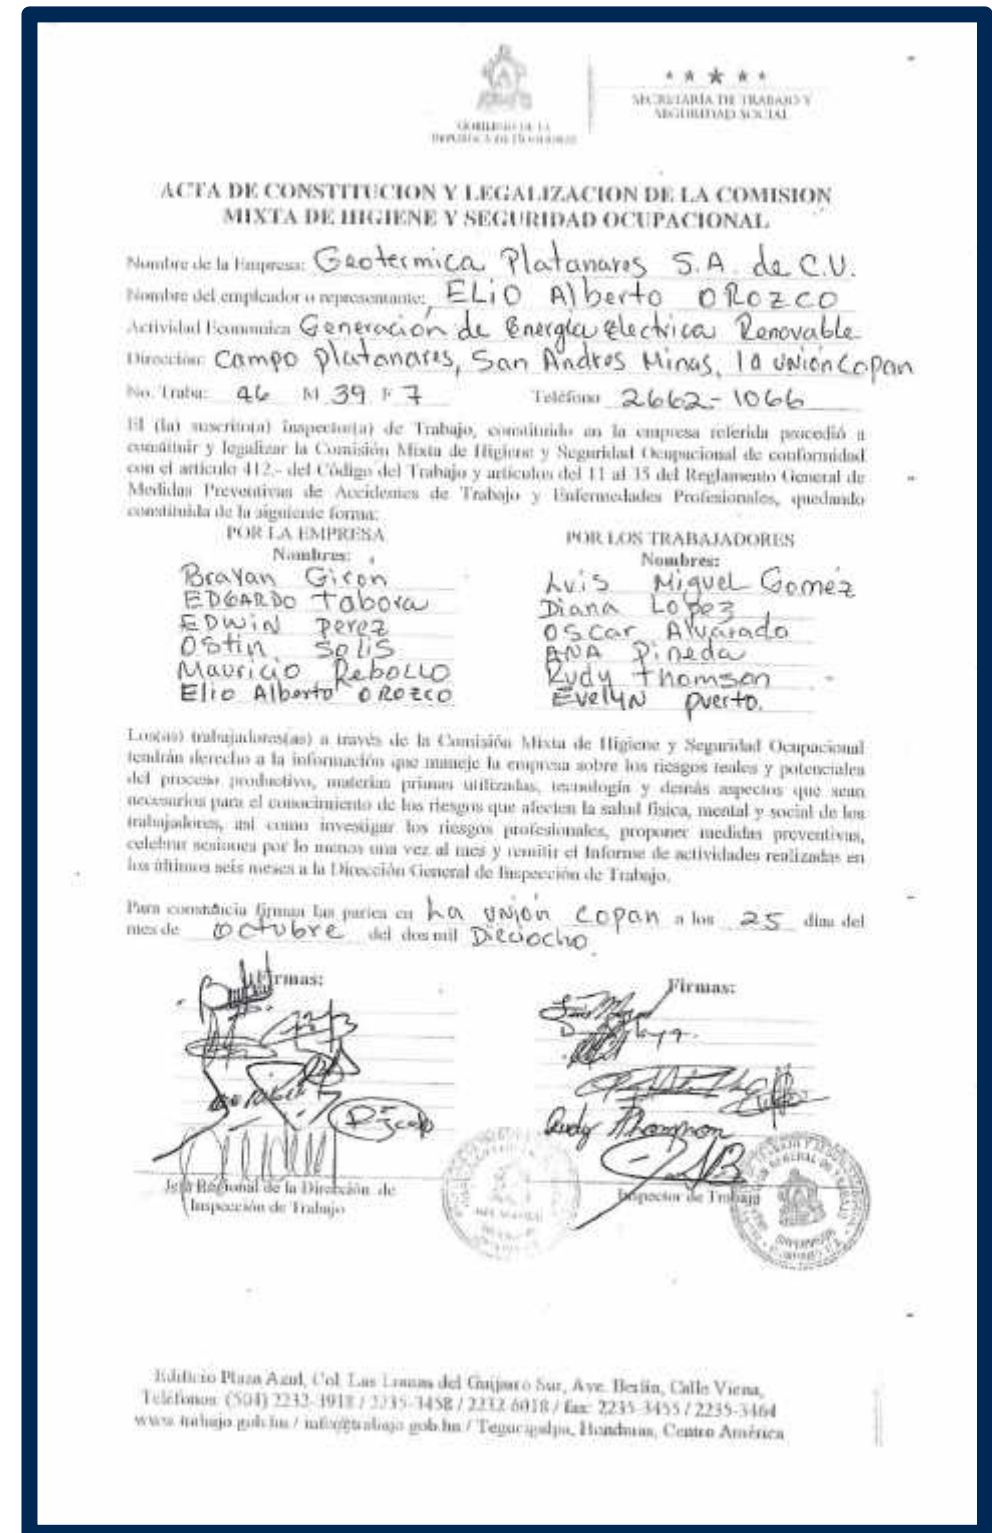 GOBIERNO DE LA
REPÚBLICA DE HONDURAS
SECRETARÍA DE TRABAJO Y
SEGURIDAD SOCIAL
ACTA DE CONSTITUCION Y LEGALIZACION DE LA COMISION
MIXTA DE HIGIENE Y SEGURIDAD OCUPACIONAL
Nombre de la Empresa: Geotermica Platanares S.A. de C.V.
Nombre del empleador o representante: ELIO Alberto OROZCO
Actividad Economica Generación de Energía Electrica Renovable
Direccion: Campo platanares, San Andres Minas, la unión Copan
No. Traba: 46 M 39 F 7 Teléfono 2662-1066
El (la) suscrito(a) Inspector(a) de Trabajo, constituido en la empresa referida procedió a
constituir y legalizar la Comisión Mixta de Higiene y Seguridad Ocupacional de conformidad
con el articulo 412,- del Código del Trabajo y artículos del 11 al 15 del Reglamento General de
Medidas Preventivas de Accidentes de Trabajo y Enfermedades Profesionales, quedando
constituida de la siguiente forma:
POR LA EMPRESA
Nombres:
Brayan Giron
EDGARDO Tabora
EDWIN perez
Ostin Solis
Mauricio Rebollo
Elio Alberto OROZCO
POR LOS TRABAJADORES
Nombres:
Luis Miguel Gomez
Diana Lopez
Oscar Alvarado
ANA Pineda
Rudy thomson
Evelyn puerto.
Los(as) trabajadores(as) a través de la Comisión Mixta de Higiene y Seguridad Ocupacional
tendrán derecho a la información que maneje la empresa sobre los riesgos reales y potenciales
del proceso productivo, materias primas utilizadas, tecnología y demás aspectos que sean
necesarios para el conocimiento de los riesgos que afecten la salud física, mental y social de los
trabajadores, así como investigar los riesgos profesionales, proponer medidas preventivas,
celebrar sesiones por lo menos una vez al mes y remitir el Informe de actividades realizadas en
los últimos seis meses a la Dirección General de Inspección de Trabajo.
Para constancia firman las partes en La unión Copan a los 25 días del
mes de octubre del dos mil Dieciocho.
Firmas:
Firmas:
Rudy Thompson
Jefe Regional de la Dirección de
Inspección de Trabajo
Inspector de Trabajo
Edificio Plaza Azul, Col. Las Lomas del Guijarro Sur, Ave. Berlín, Calle Viena,
Teléfonos: (504) 2232-3918 / 2235-3458 / 2232 6018 / fax: 2235-3455 / 2235-3464
www.trabajo.gob.hn / info@trabajo.gob.hn / Tegucigalpa, Honduras, Centro América